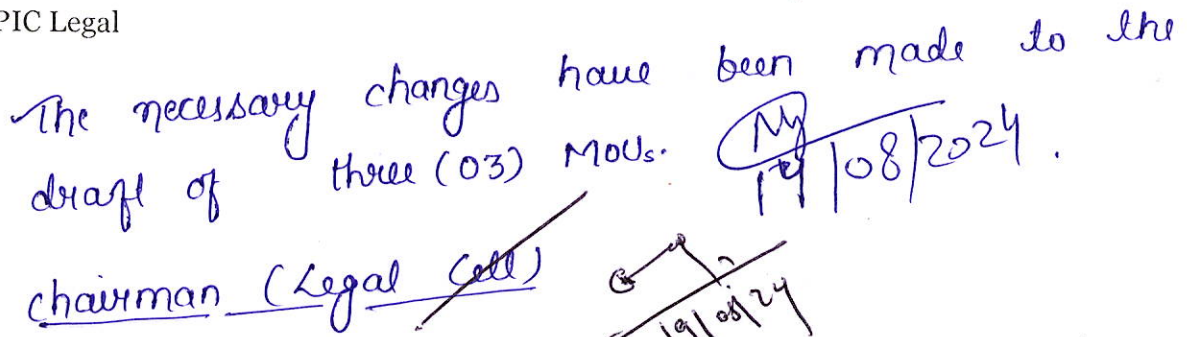 PIC Legal
The necessary changes have been made to the
draft of three (03) MOUs.
/08/2024.
chairman (Legal Cell)
19/08/24